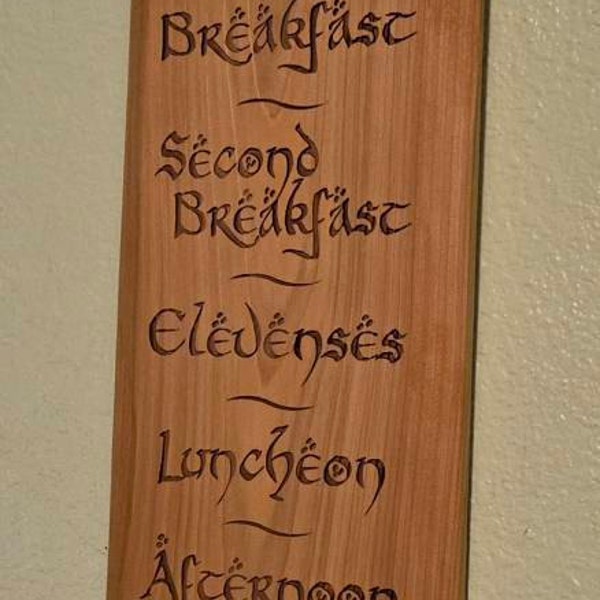 Breakfast
Second
Breakfast
Elevenses
Luncheon
Afternoon